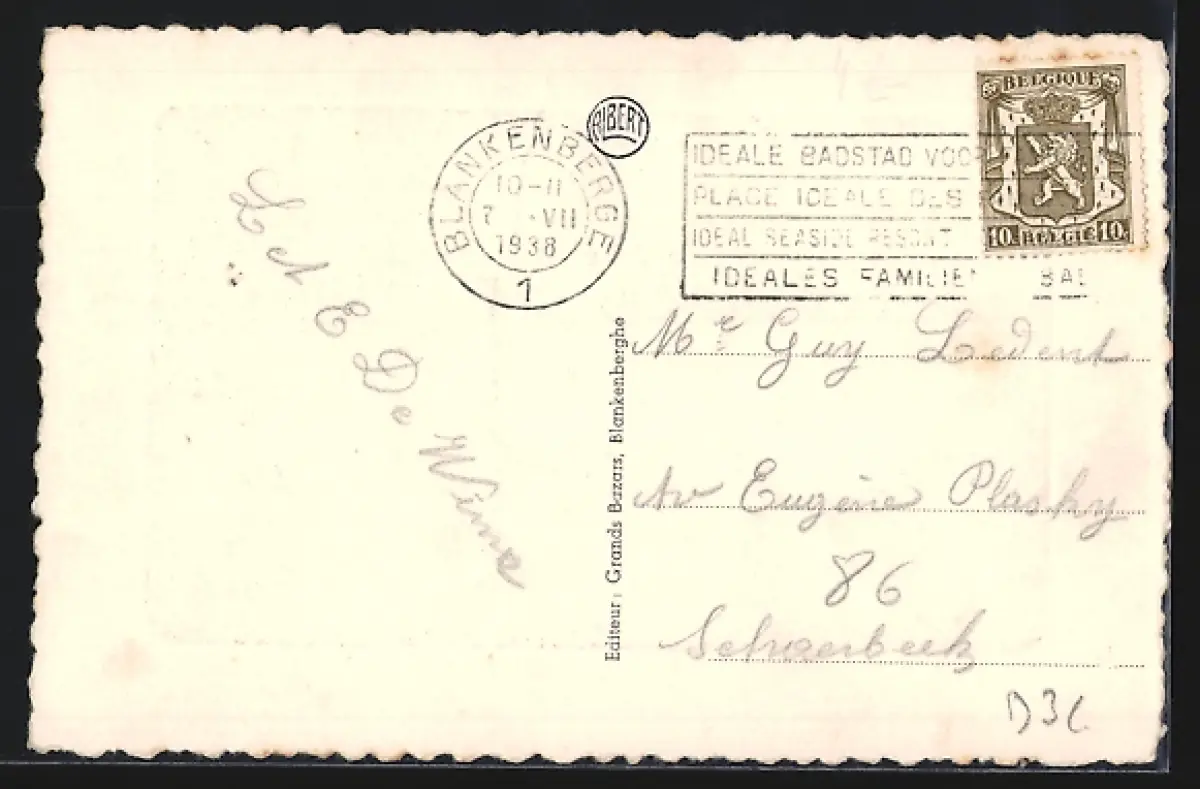 ALBERT
BLANKENBERGE
10-11
7 VII
1938
1
IDEALE BADSTAD VOOR
PLACE IDEALE DES
IDEAL SEASIDE RESORT
IDEALES FAMILIEN BAD
BELGIQUE
10c BELGIE 10c
L et E De Wime
Editeur: Grands Bazars, Blankenberghe
Me Guy Ledent
Av Eugène Plasky
86
Schaerbeek
D3C